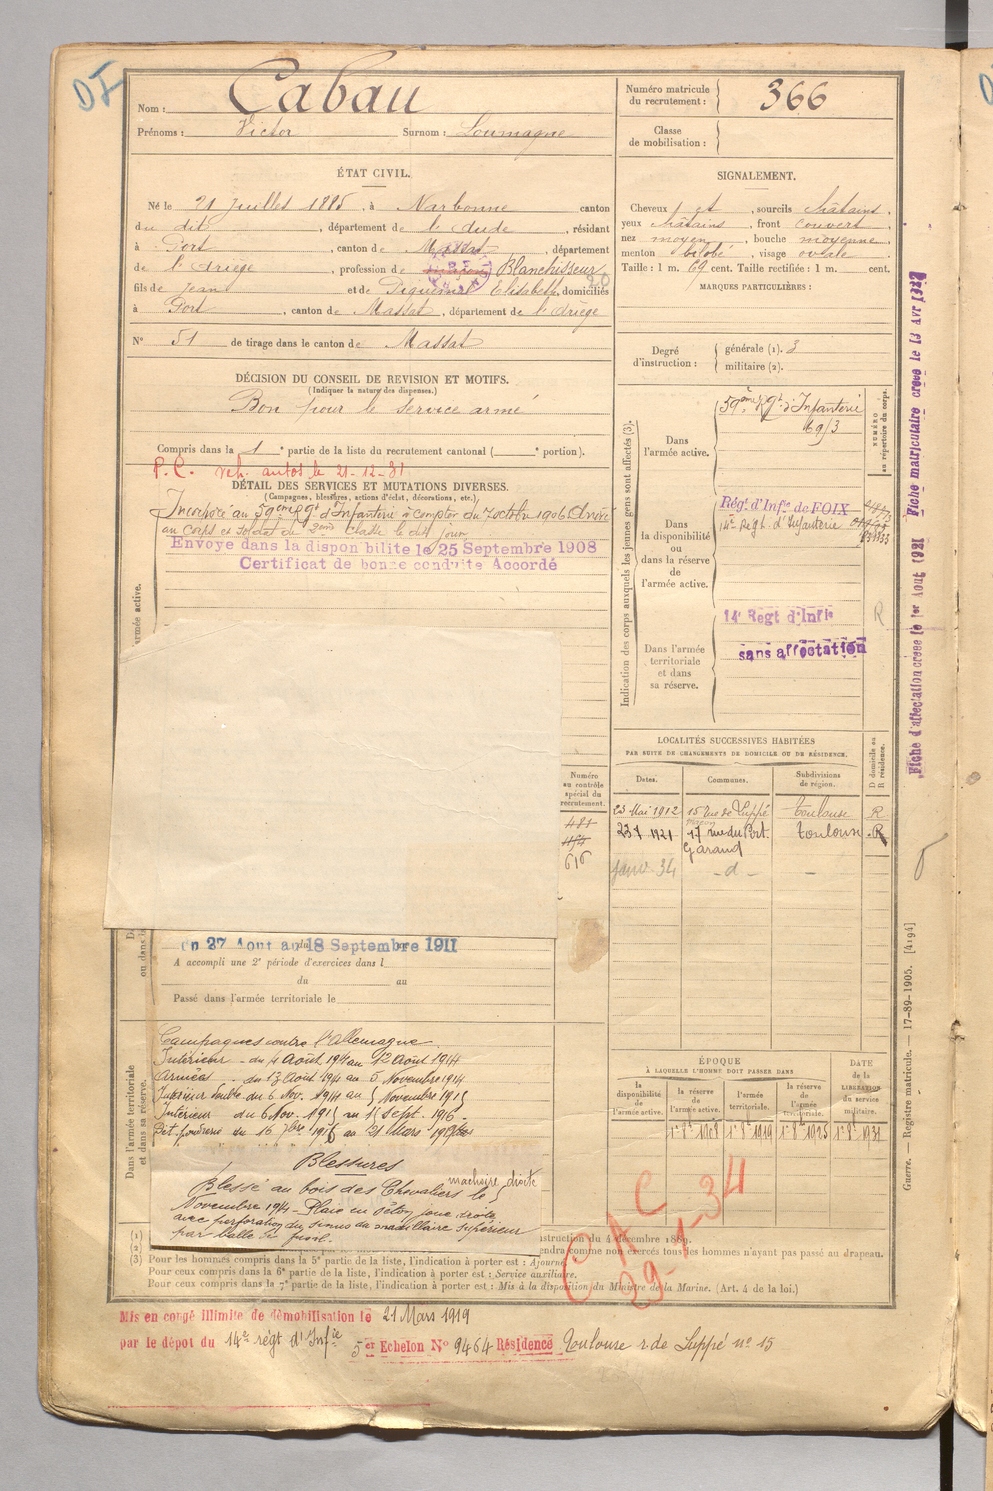 Nom : Cabau
Prénoms : Victor Surnom : Loumagne
Numéro matricule du recrutement : 366
Classe de mobilisation :
ÉTAT CIVIL.
Né le 21 Juillet 1885, à Narbonne canton
du dit, département de l'Aude, résidant
à Port, canton de Massat, département
de l'Ariège, profession de Blanchisseur
fils de Jean et de Piquemal Elisabeth, domiciliés
à Port, canton de Massat, département de l'Ariège
N° 51 de tirage dans le canton de Massat
SIGNALEMENT.
Cheveux et, sourcils châtains,
yeux châtains, front couvert,
nez moyen, bouche moyenne,
menton bilobé, visage ovale
Taille : 1 m. 69 cent. Taille rectifiée : 1 m. cent.
MARQUES PARTICULIÈRES :
Degré d'instruction : générale (1). 3
militaire (2).
DÉCISION DU CONSEIL DE REVISION ET MOTIFS.
(Indiquer la nature des dispenses.)
Bon pour le service armé
Compris dans la 1e partie de la liste du recrutement cantonal ( e portion).
P.C. ref. autos le 21-12-31
DÉTAIL DES SERVICES ET MUTATIONS DIVERSES.
(Campagnes, blessures, actions d'éclat, décorations, etc.)
Incorporé au 59ème Rgt d'Infanterie à compter du 7 octobre 1906 Arrivé
au corps et soldat de 2ème classe le dit jour
Envoyé dans la disponibilité le 25 Septembre 1908
Certificat de bonne conduite Accordé
armée active.
Indication des corps auxquels les jeunes gens sont affectés (3).
NUMÉRO au répertoire du corps.
Dans l'armée active.
59ème Rgt d'Infanterie
69/3
Dans la disponibilité ou dans la réserve de l'armée active.
Régt d'Infie de FOIX
14e Régt d'Infanterie
R
14e Regt d'Infie
Dans l'armée territoriale et dans sa réserve.
sans affectation
Fiche d'affectation créée le 1er Aout 1921 Fiche matriculaire créée le 13 Avr 1927
LOCALITÉS SUCCESSIVES HABITÉES
PAR SUITE DE CHANGEMENTS DE DOMICILE OU DE RÉSIDENCE.
Dates. Communes. Subdivisions de région. D domicile ou R résidence.
23 Mai 1912 15 rue de Suppé Toulouse R
237 1921 17 rue du Port Garaud Toulouse R
Janv 34 -d- -
Numéro au contrôle spécial du recrutement.
481
454
616
du 27 Aout au 18 Septembre 1911
A accompli une 2e période d'exercices dans l
du au
Passé dans l'armée territoriale le
Dans l'armée territoriale et dans sa réserve.
Campagnes contre l'Allemagne
Intérieur - du 4 Août 1914 au 12 Août 1914
Armées - du 13 Août 1914 au 5 Novembre 1914
Intérieur du 6 Nov. 1914 au 5 Novembre 1915
Intérieur du 6 Nov. 1915 au 15 Sept. 1916
Blessures
Blessé au bois des Chevaliers le 5
machoire droite
Novembre 1914 - Plaie en séton joue droite
avec perforation du sinus du maxillaire supérieur
par balle de fusil.
ÉPOQUE
À LAQUELLE L'HOMME DOIT PASSER DANS
la disponibilité de l'armée active. la réserve de l'armée active. l'armée territoriale. la réserve de l'armée territoriale.
DATE de la LIBÉRATION du service militaire.
1er 8bre 1908 1er 8bre 1919 1er 8bre 1925 1er 8bre 1931
C A C
29-1-34
(1)
(2)
instruction du 4 décembre 1889.
endra comme non exercés tous les hommes n'ayant pas passé au drapeau.
(3) Pour les hommes compris dans la 5e partie de la liste, l'indication à porter est : Ajourné
Pour ceux compris dans la 6e partie de la liste, l'indication à porter est : Service auxiliaire.
Pour ceux compris dans la 7e partie de la liste, l'indication à porter est : Mis à la disposition du Ministre de la Marine. (Art. 4 de la loi.)
Guerre. — Registre matricule. — 17-89-1905. [4194]
Mis en congé illimité de démobilisation le 21 Mars 1919
par le dépôt du 14e régt d'Infie 5er Echelon N° 9464 Résidence Toulouse r. de Suppé n° 15